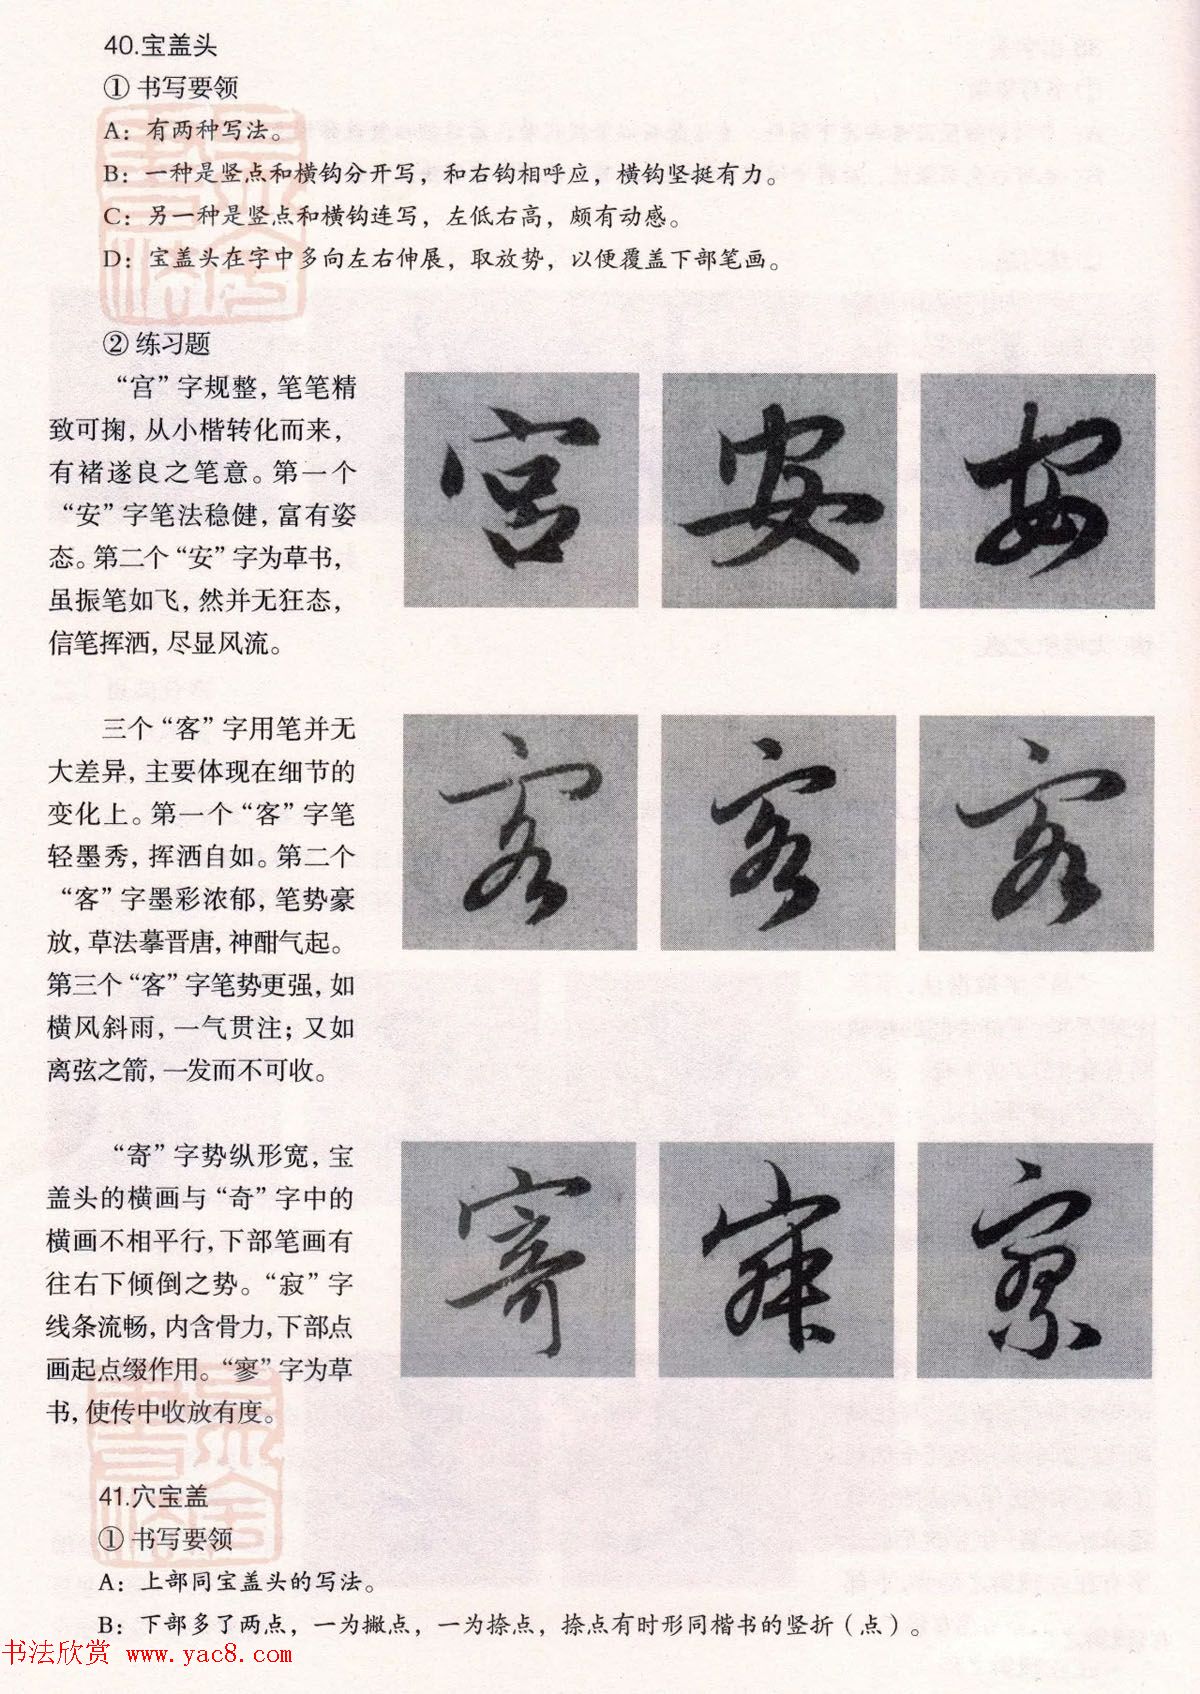 40.宝盖头
① 书写要领
A：有两种写法。
B：一种是竖点和横钩分开写，和右钩相呼应，横钩坚挺有力。
C：另一种是竖点和横钩连写，左低右高，颇有动感。
D：宝盖头在字中多向左右伸展，取放势，以便覆盖下部笔画。
② 练习题
“宫”字规整，笔笔精
致可掬，从小楷转化而来，
有褚遂良之笔意。第一个
“安”字笔法稳健，富有姿
态。第二个“安”字为草书，
虽振笔如飞，然并无狂态，
信笔挥洒，尽显风流。
宫 安 安
三个“客”字用笔并无
大差异，主要体现在细节的
变化上。第一个“客”字笔
轻墨秀，挥洒自如。第二个
“客”字墨彩浓郁，笔势豪
放，草法摹晋唐，神酣气起。
第三个“客”字笔势更强，如
横风斜雨，一气贯注；又如
离弦之箭，一发而不可收。
客 客 客
“寄”字势纵形宽，宝
盖头的横画与“奇”字中的
横画不相平行，下部笔画有
往右下倾倒之势。“寂”字
线条流畅，内含骨力，下部点
画起点缀作用。“寥”字为草
书，使传中收放有度。
寄 寂 寥
41.穴宝盖
① 书写要领
A：上部同宝盖头的写法。
B：下部多了两点，一为撇点，一为捺点，捺点有时形同楷书的竖折（点）。
书法欣赏 www.yac8.com